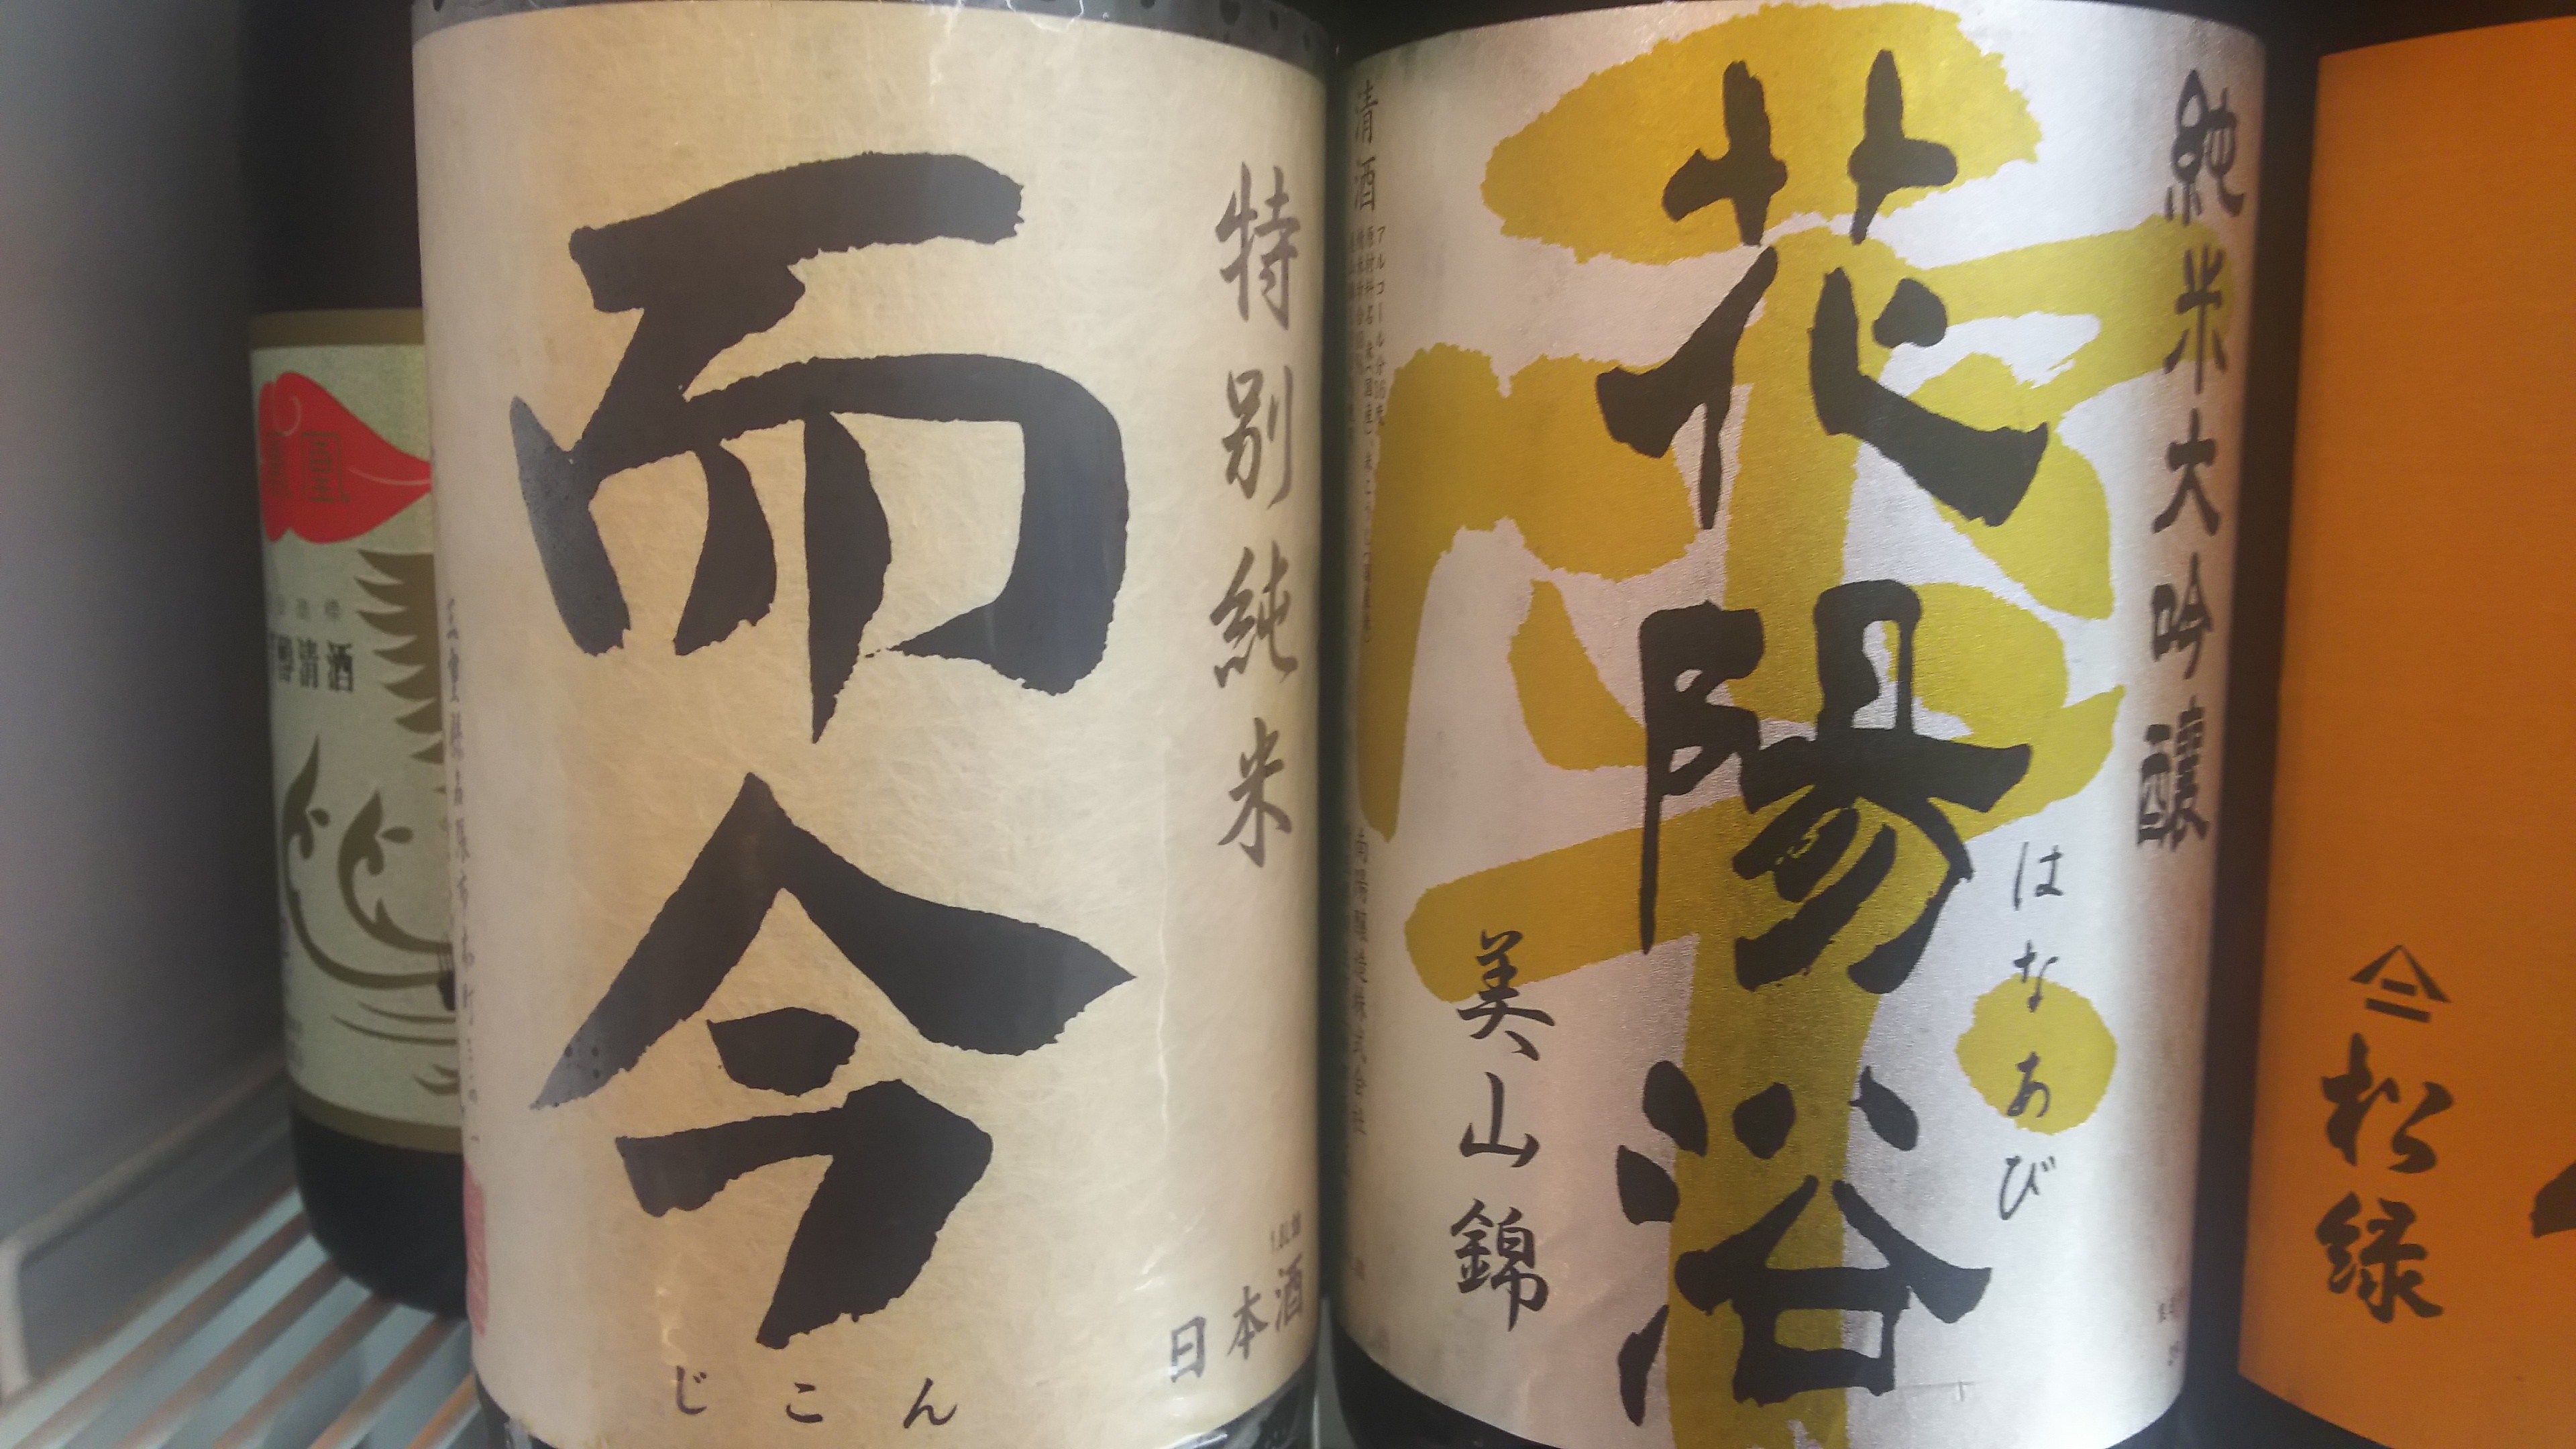 樽清酒
特別純米
而今
じこん
日本酒
三重県名張市本町
純米大吟醸
花陽浴
はなあび
美山錦
清酒
アルコール分16度
南陽醸造株式会社
松緑